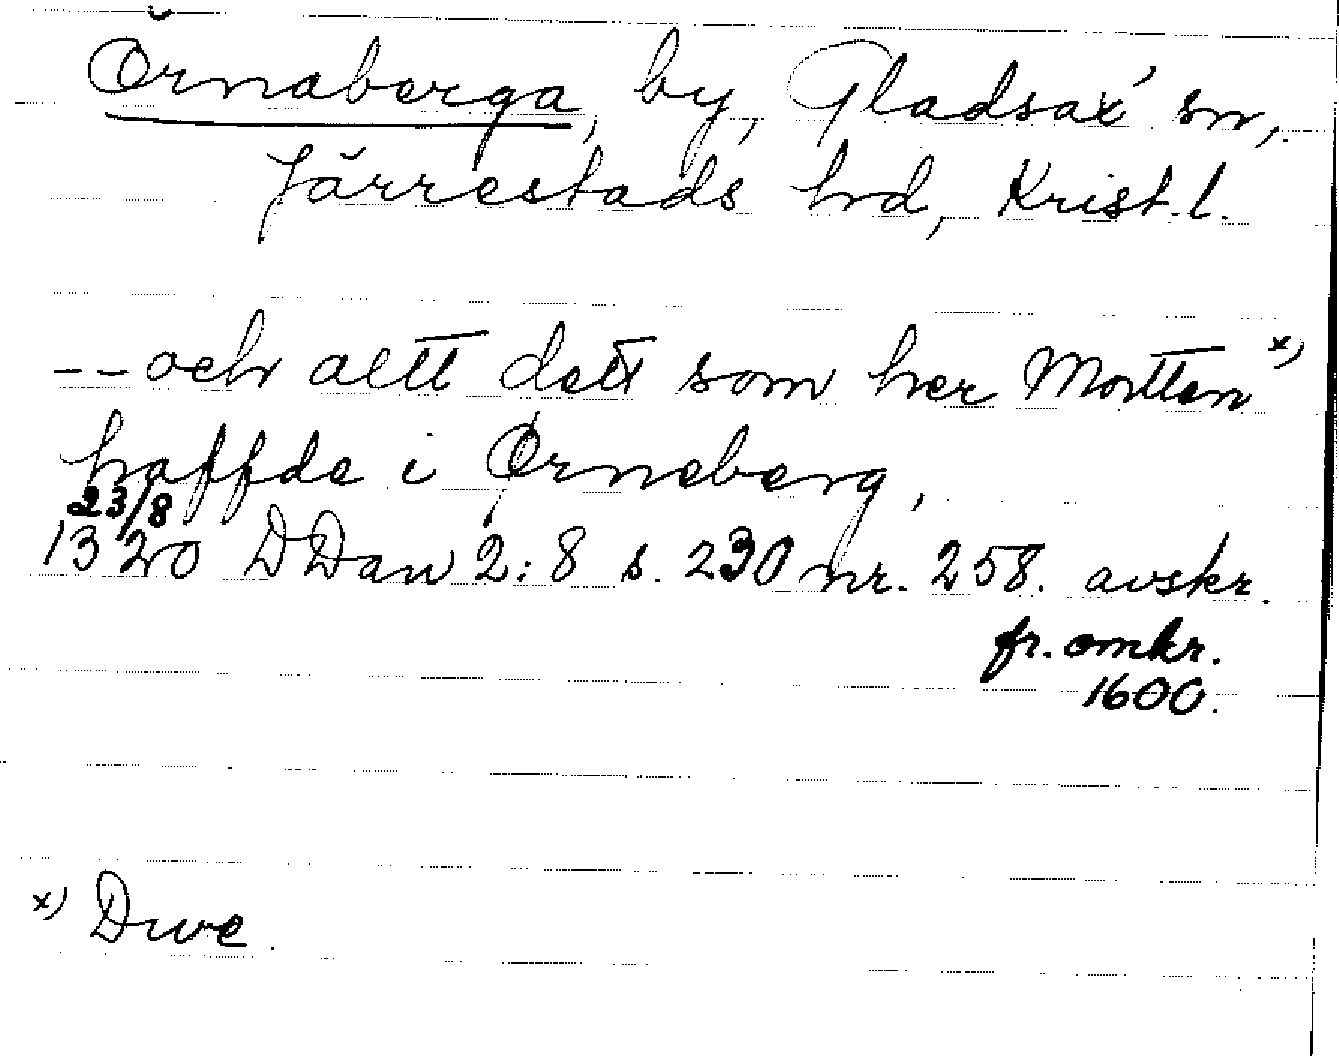 Örnaberga, by, Gladsax' sn,
Järrestads hd, Krist. l.
-- och altt dett som her Mortten x)
haffde i Ørneberg,
23/8
1320 DDan 2:8 s. 230 nr. 258. avskr.
fr. omkr.
1600.
x) Duve.